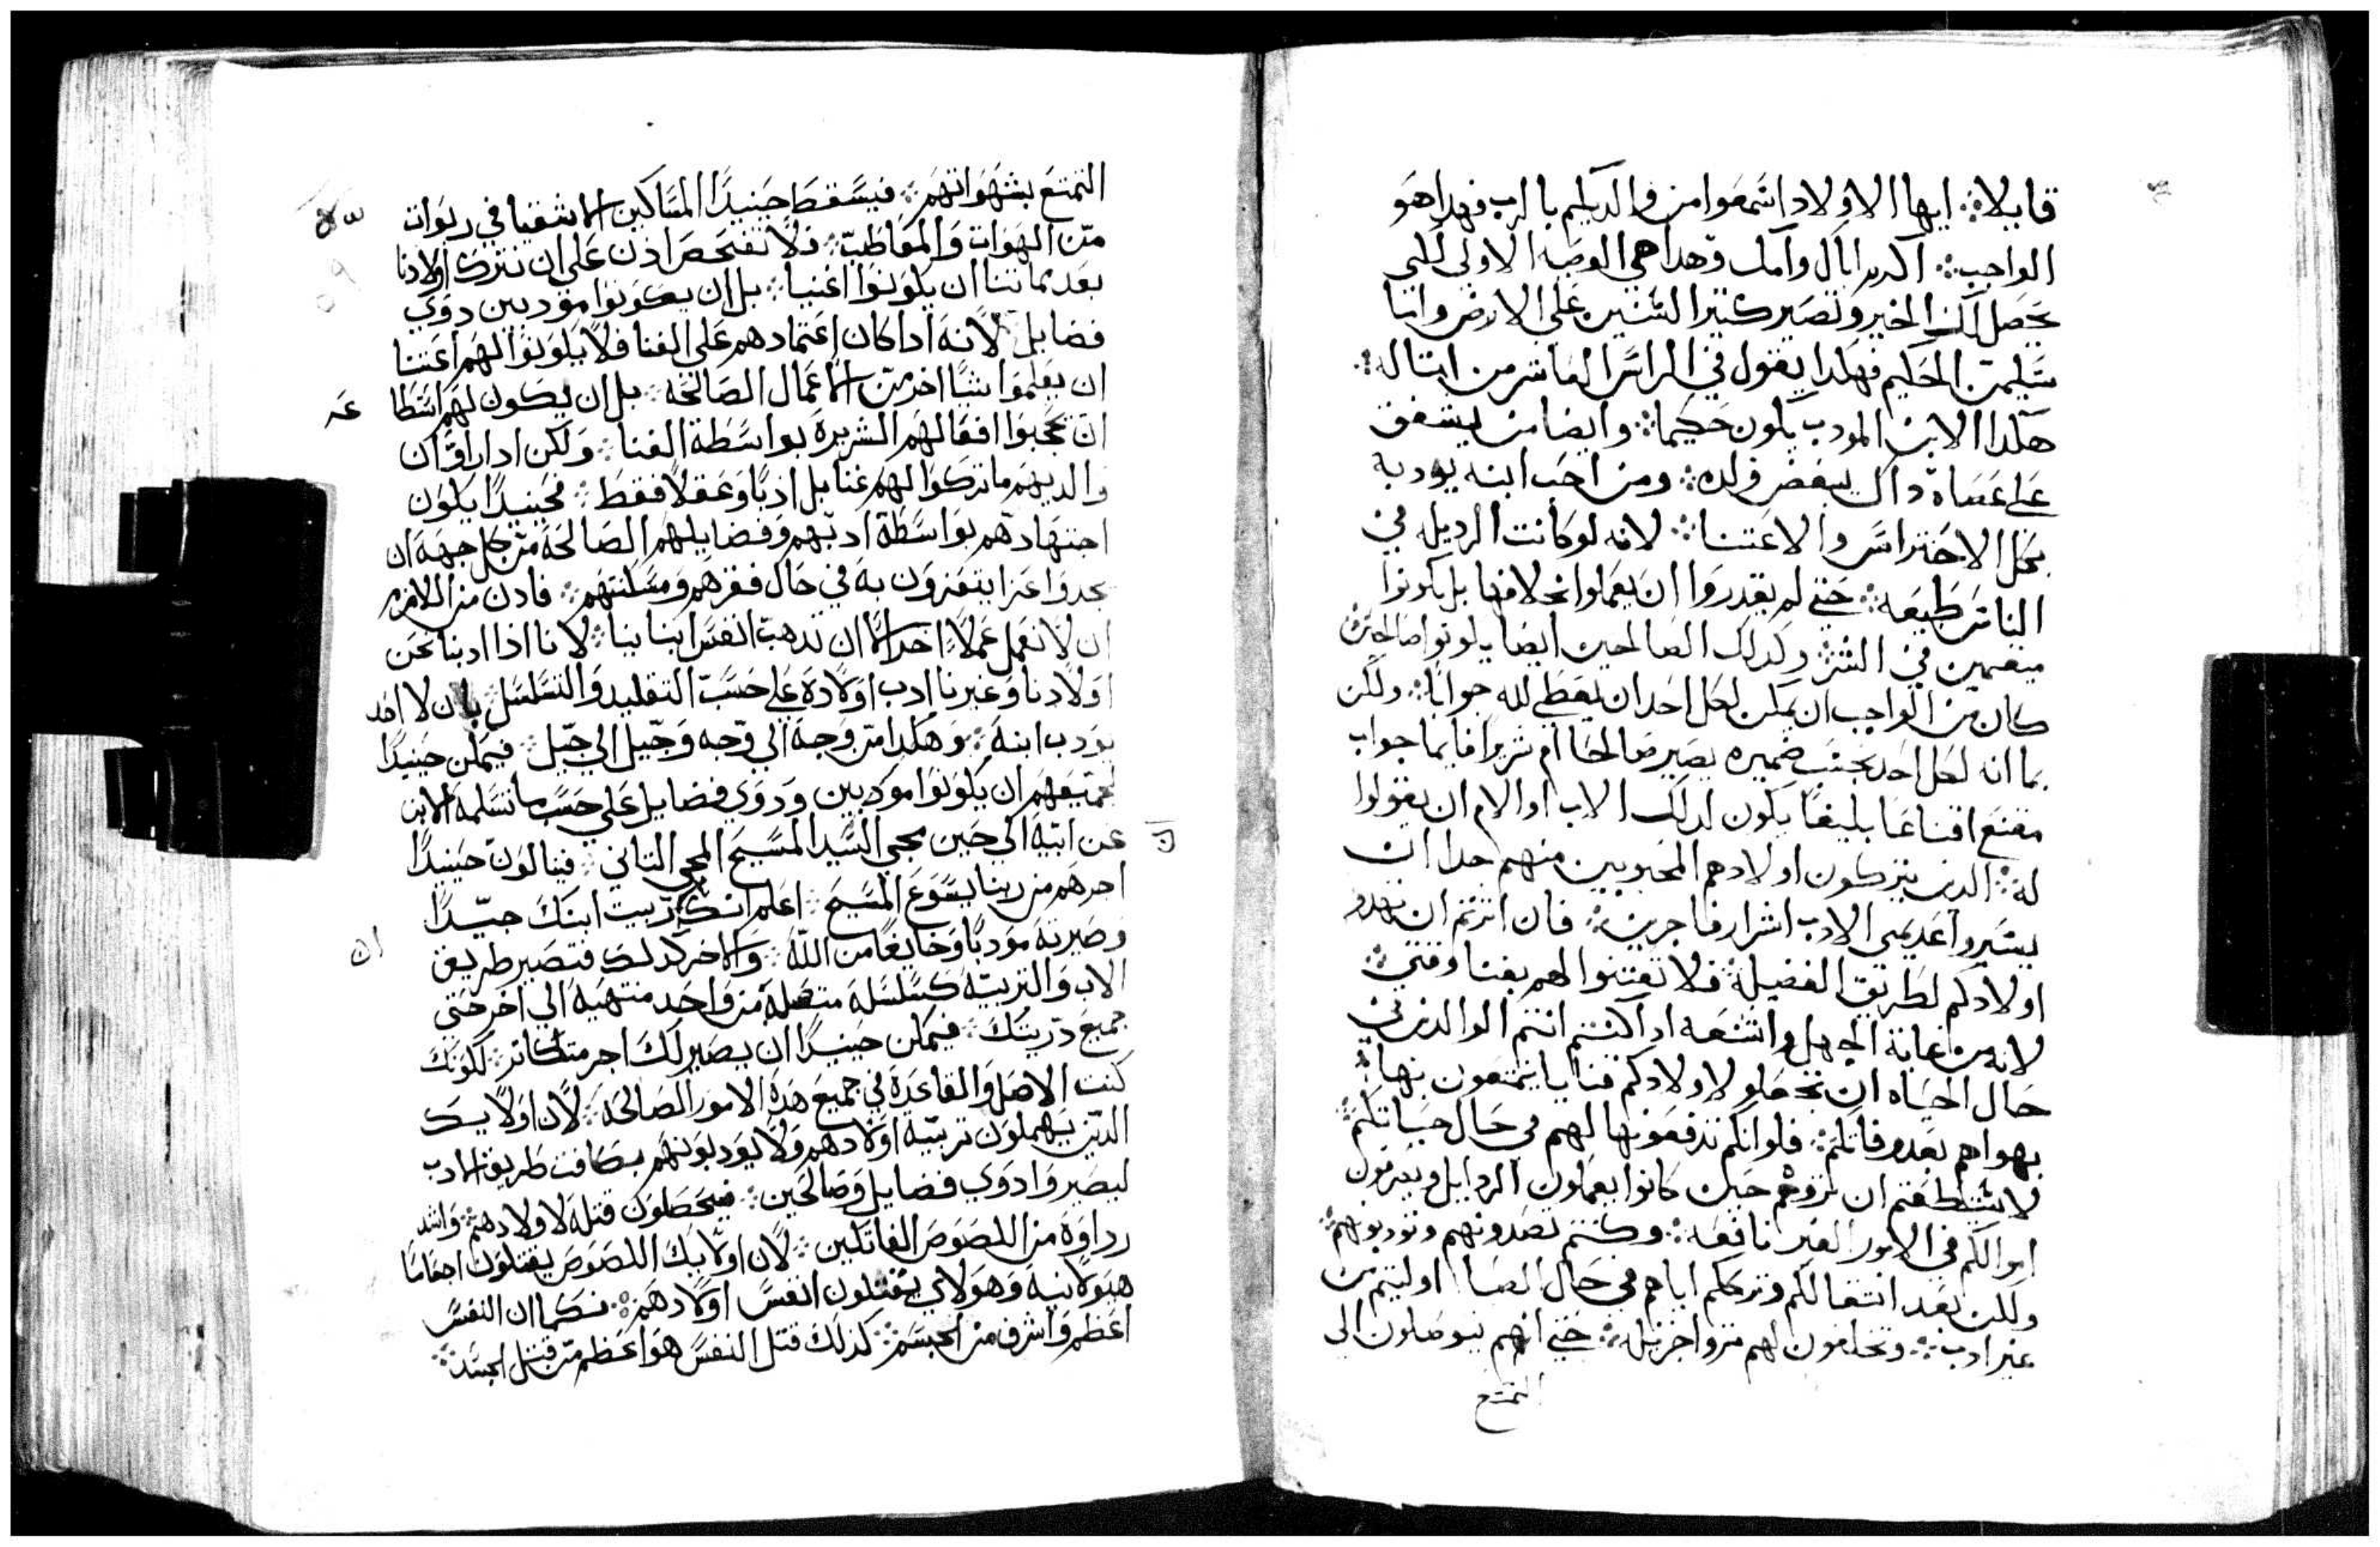 قايلا ايها الاولاد اسمعوا من والديكم بالرب فهدا هو
الواجب اكرم اباك وامك وهدا هي الوصيه الاولي لكي
يحصل لك الخير وتصير كتير السنين علي الارض وايتا
سليمن الحكيم فهكدا يقول في الراس العاشر من امتاله
هكدا الابن المودب يكون حكيما وايضا من يشفق
علي عصاه داك يبغض ولده ومن احب ابنه يودبه
بكل الاحتراس والاعتنا لانه لو كانت الرديله في
الناس طبيعه حتي لم يقدروا ان يعملوا بخلافها بل يكونوا
مقيمين في الشر وكدلك الصالحين ايضا يكونوا صالحين
كان من الواجب ان يمكن لكل احد ان يعطي لله جوابا ولكن
بما انه لكل احد بحسب ضميره يصير صالحا ام شريرا فايما جواب
مقنع اقناعا بليغا يكون لدلك الاب او الام ان يقولوا
له الدين يتركون اولادهم المحبوبين منهم جدا ان
يسيروا عديمي الادب اشرار فاجرين فان اثرتم ان تهدو
اولادكم لطريق الفضيله فلا تعتنوا لهم بغنا وقتي
لانه من غاية الجهل واشنعه ادا كنتم انتم الوالدين في
حال الحياه ان تحصلو لاولادكم غنايا يتمتعون بها
بهواهم بعد وفاتكم فلو انكم تدفعونها لهم في حال حياتكم
لاستطعتم ان تردوهم حين كانوا يعملون الردايل ويصرفون
اموالكم في الامور الغير نافعه وكنتم تصدونهم وتودبونهم
ولكن بعد انتقالكم وترككم اياهم في حال الصبا اوليتم من
غير ادب وتخلفون لهم ثروا جزيله حتي انهم يتوصلون الي
التمتع
التمتع بشهواتهم فيسقط حينيدا المساكين الاشقيا في ربوات
من الهوات والمعاطب فلا نفتحص ادن علي ان نترك اولادنا
بعد مماتنا ان يكونوا اغنيا بل ان يكونوا مودبين دوي
فضايل لانه ادا كان اعتمادهم علي الغنا فلا يكونوا لهم اعتنا
ان يعلموا شيا اخر من الاعمال الصالحه بل ان يكون لهم استطا عه
ان يحجبوا افعالهم الشريره بواسطة الغنا ولكن ادا راوا ان
والديهم ما تركوا لهم غنا بل ادبا وعقلا فقط فحينيدا يكون
اجتهادهم بواسطة ادبهم وفضايلهم الصالحه من كل جهه ان
يجدوا عزا يتعزون به في حال فقرهم ومسكنتهم فادن من اللازم
ان لا نعمل عملا اخر الا ان ندهب انفس ابناينا لاننا ادا ادبنا نحن
اولادنا وغيرنا ادب اولاده علي حسب التقليد والتسلسل بان لا احد
يودب ابنه وهكدا من وجه الي وجه وجيل الي جيل فيمكن حينيدا
لجميعهم ان يكونوا مودبين ودوي فضايل علي حسب ما تسلمه الابن
عن ابيه الي حين مجي السيد المسيح المجي التاني فينالون حينيدا
اجرهم من ربنا يسوع المسيح اعلم انك ربيت ابنك جيدا
وصيرته مودبا وخايفا من الله والاخر كدلك فتصير طريق
الاب والتربيه كسلسله متصله من واحد منتهيه الي اخر حتي
جميع دريتك فيمكن حينيدا ان يصير لك اجر متكاتر لكونك
كنت الاصل والقاعده في جميع هده الامور الصالحه لان اولايك
الدين يهملون تربية اولادهم ولا يودبونهم بكافت طريق الادب
ليصيروا دوي فضايل وصالحين فيحصلون قتله لاولادهم واشد
رداوه من اللصوص القاتلين لان اولايك اللصوص يقتلون اجساما
هيولانيه وهولاي يقتلون انفس اولادهم فكما ان النفس
اعظم واشرف من الجسم كدلك قتل النفس هو اعظم من قتل الجسد
ان